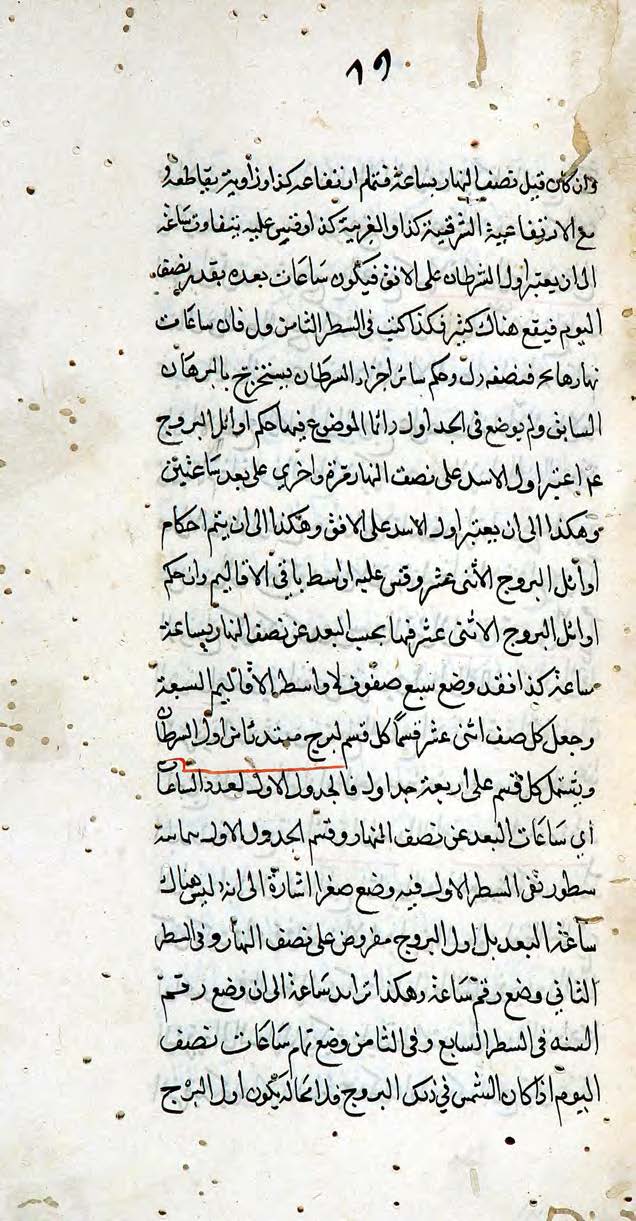 ١٩
وان كان قبل نصف النهار بساعة فتعلم ارتفاعه كذا وزاوية تقاطعه
مع الارتفاعية الشرقية كذا والغربية كذا وقس عليه بتفاوت ساعة
الى ان يعتبر اول السرطان على الافق فيكون ساعات بعده بقدر نصف
اليوم فيقع هناك كثير فكذا كتب فى السطر الثامن ول فان ساعات
نهارها فنصفه وحكم سائر اجزاء السرطان يستخرج بالبرهان
السابق ولم يوضع فى الجداول وانما الموضوع فيها حكم اوائل البروج
ثم اعتبر اول الاسد على نصف النهار مرة واخري على بعد ساعتين
وهكذا الى ان يعتبر اول الاسد على الافق وهكذا الى ان يتم احكام
اوائل البروج الاثنى عشر وقس عليه اواسط باقى الاقاليم وان حكم
اوائل البروج الاثنى عشر فيها بحسب البعد عن نصف النهار بساعة
ساعة كذا فقد وضع سبع صفوف لاواسط الاقاليم السبعة
وجعل كل صف اثنى عشر قسمًا كل قسم لبرج مبتدئا من اول السرطان
ويشتمل كل قسم على اربعة جداول فالجدول الاول لعدد الساعات
اي ساعات البعد عن نصف النهار وقسم الجدول الاول
سطور ففى السطر الاول فيه وضع صفرا اشارة الى انه ليس هناك
ساعة البعد بل اول البروج مفروض على نصف النهار وفى السطر
الثانى وضع رقم ساعة وهكذا تزايد ساعة الى ان وضع رقم
الستة فى السطر السابع وفى الثامن وضع تمام ساعات نصف
اليوم اذا كان الشمس في ذلك البروج فلا محالة يكون اول البرج